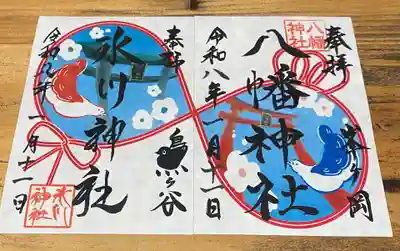 奉拝
八幡神社
峯ヶ岡
八幡神社
令和八年一月十一日
奉拝
鳥ヶ谷
氷川神社
氷川神社
令和八年一月十一日